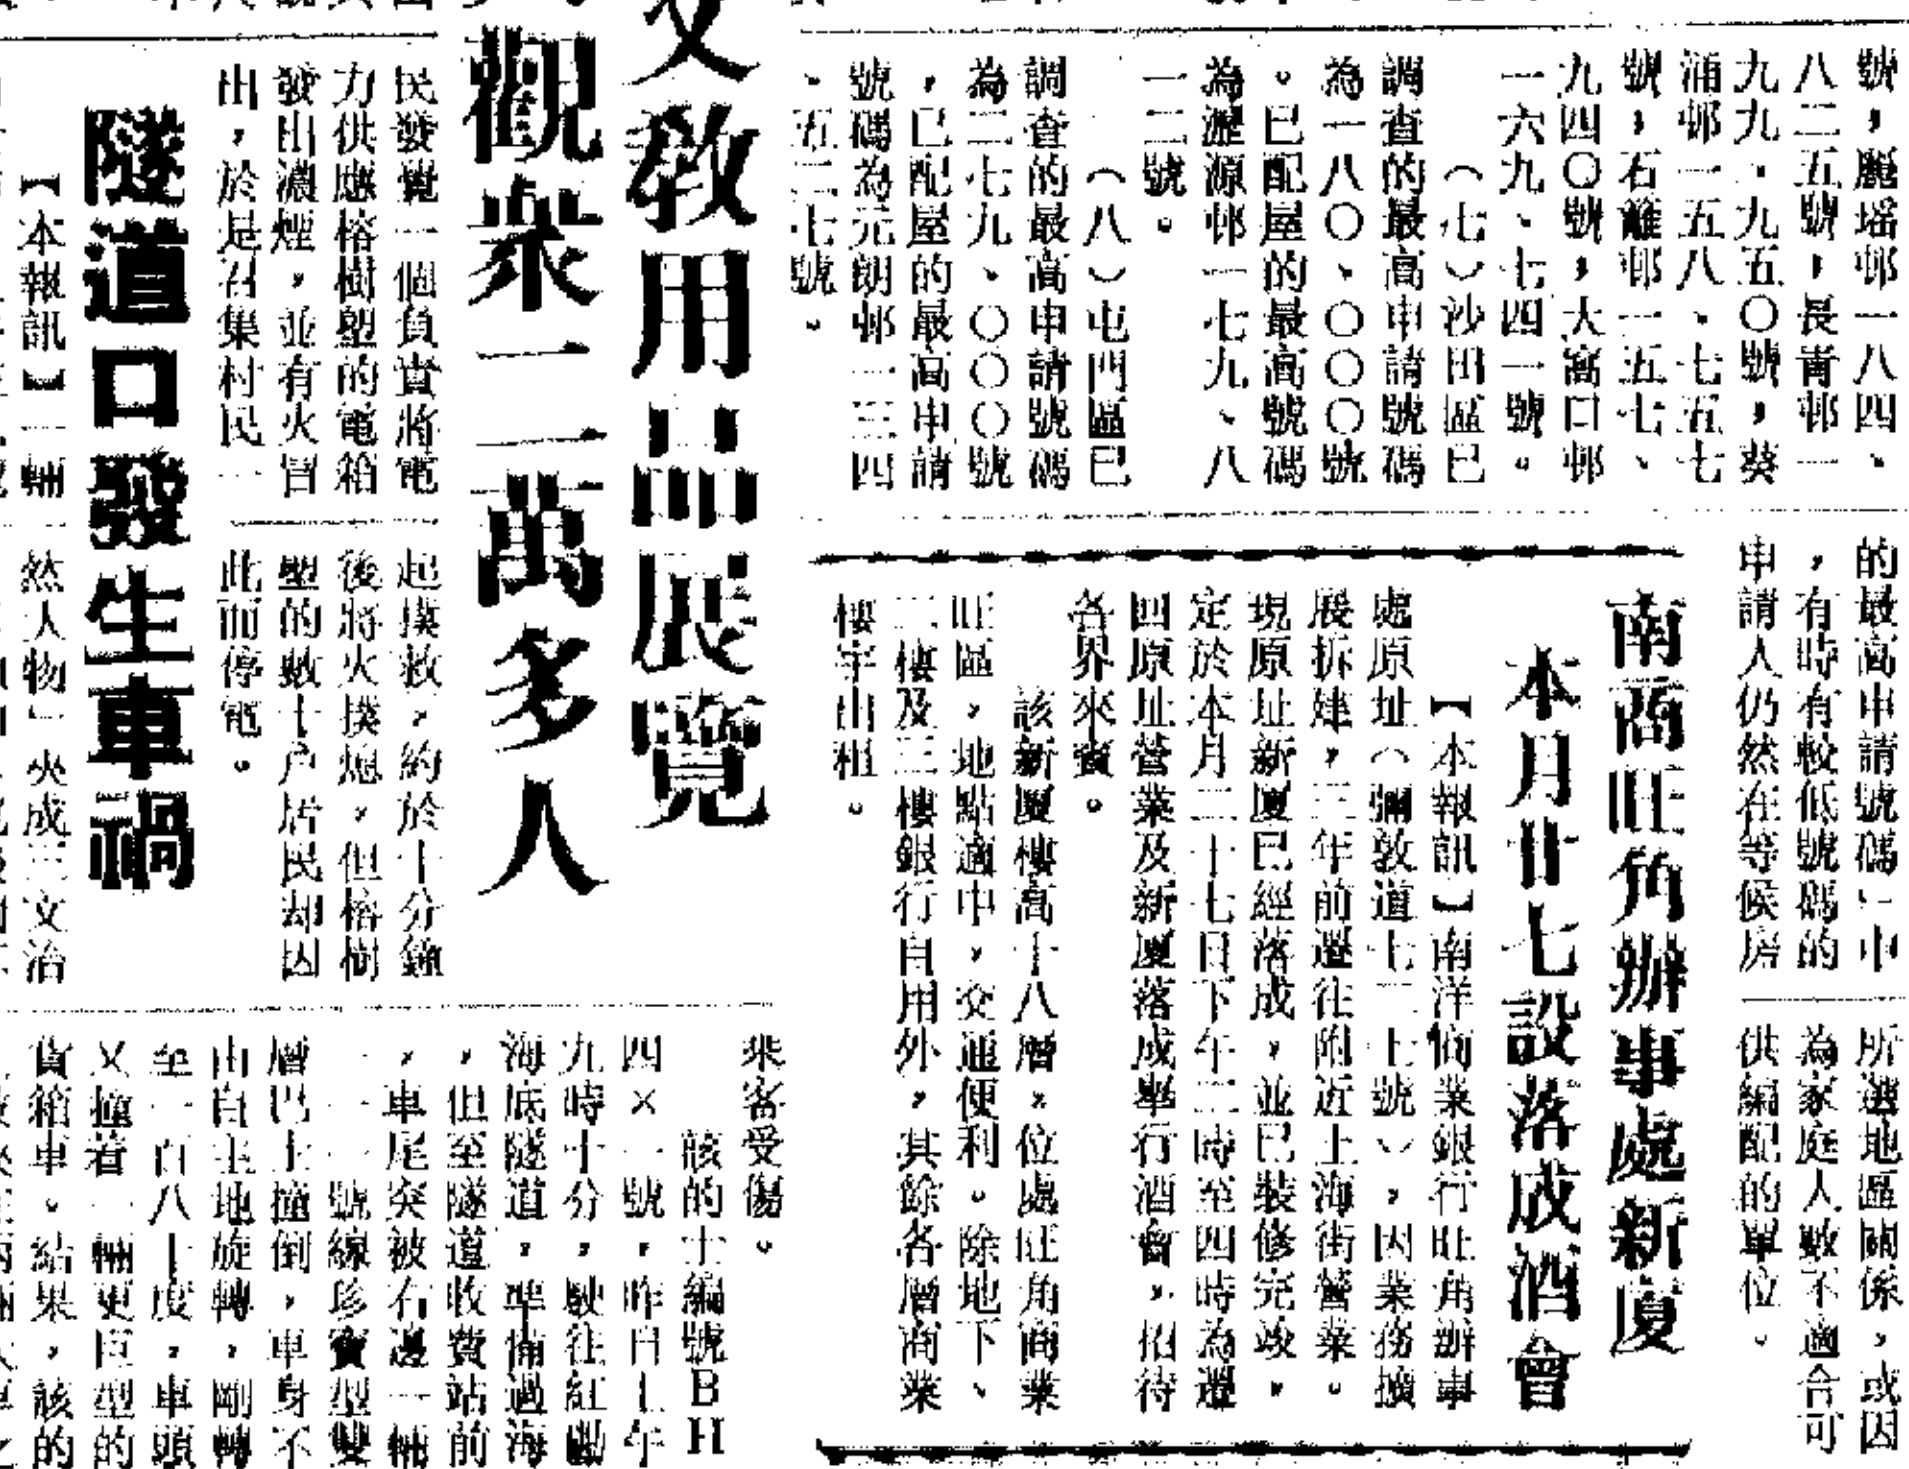 號，麗瑤邨一八四、
八二五號，長青邨一
九九、九五〇號，葵
涌邨一五八、七五七
號，石籬邨一五七、
九四〇號，大窩口邨
一六九、七四一號。
（七）沙田區已
調查的最高申請號碼
為一八〇、〇〇〇號
。已配屋的最高號碼
為瀝源邨一七九、八
一二號。
（八）屯門區已
調查的最高申請號碼
為二七九、〇〇〇號
，已配屋的最高申請
號碼為元朗邨一三四
、五二七號。
的最高申請號碼」中
，有時有較低號碼的
申請人仍然在等候房
所選地區關係，或因
為家庭人數不適合可
供編配的單位。
南商旺角辦事處新廈
本月廿七設落成酒會
【本報訊】南洋商業銀行旺角辦事
處原址（彌敦道七二七號），因業務擴
展拆建，三年前遷往附近上海街營業。
現原址新廈已經落成，並已裝修完竣，
定於本月二十七日下午二時至四時為遷
四原址營業及新廈落成舉行酒會，招待
各界來賓。
該新廈樓高十八層，位處旺角商業
旺區，地點適中，交通便利。除地下、
二樓及三樓銀行自用外，其餘各層商業
樓宇出租。
文教用品展覽
觀衆一二萬多人
民發覺一個負責將電
力供應榕樹塱的電箱
發出濃煙，並有火冒
出，於是召集村民一
起撲救，約於十分鐘
後將火撲熄，但榕樹
塱的數十户居民却因
此而停電。
隧道口發生車禍
【本報訊】一輛
然人物」夾成三文治
乘客受傷。
該的士編號ＢＨ
四×一號，昨日上午
九時十分，駛往紅磡
海底隧道，準備過海
，但至隧道收費站前
，車尾突被右邊一輛
一一號線珍寶型雙
層巴士撞倒，車身不
由自主地旋轉，剛轉
至一百八十度，車頭
又撞着一輛更巨型的
貨箱車。結果，該的